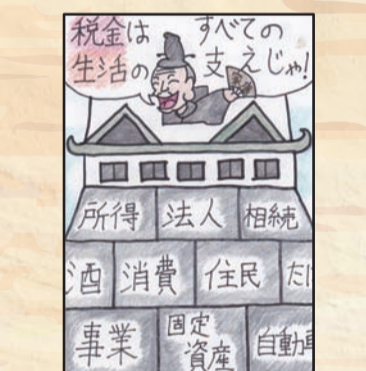 税金は すべての
生活の 支えじゃ!
所得 法人 相続
酒 消費 住民 た
事業 固定
資産 自動